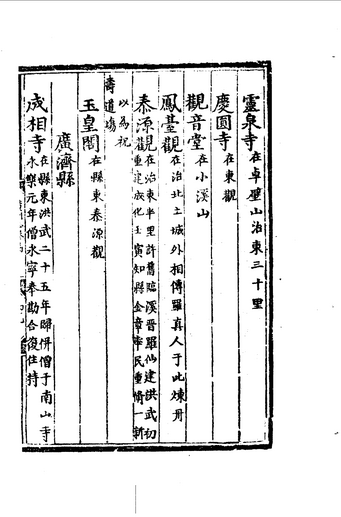 靈泉寺在卓壁山治東三十里
慶圓寺在東觀
觀音堂在小溪山
鳳臺觀在治北土城外相傳羅真人于此煉丹
泰源觀在治東半里許舊臨溪晉羅仙建洪武初重建成化壬寅知縣金章率民重脩一新以為祝
壽道塲
玉皇閣在縣東泰源觀
廣濟縣
成相寺在縣東洪武二十五年歸併僧于南山寺永樂元年僧永寧奉勘合復住持